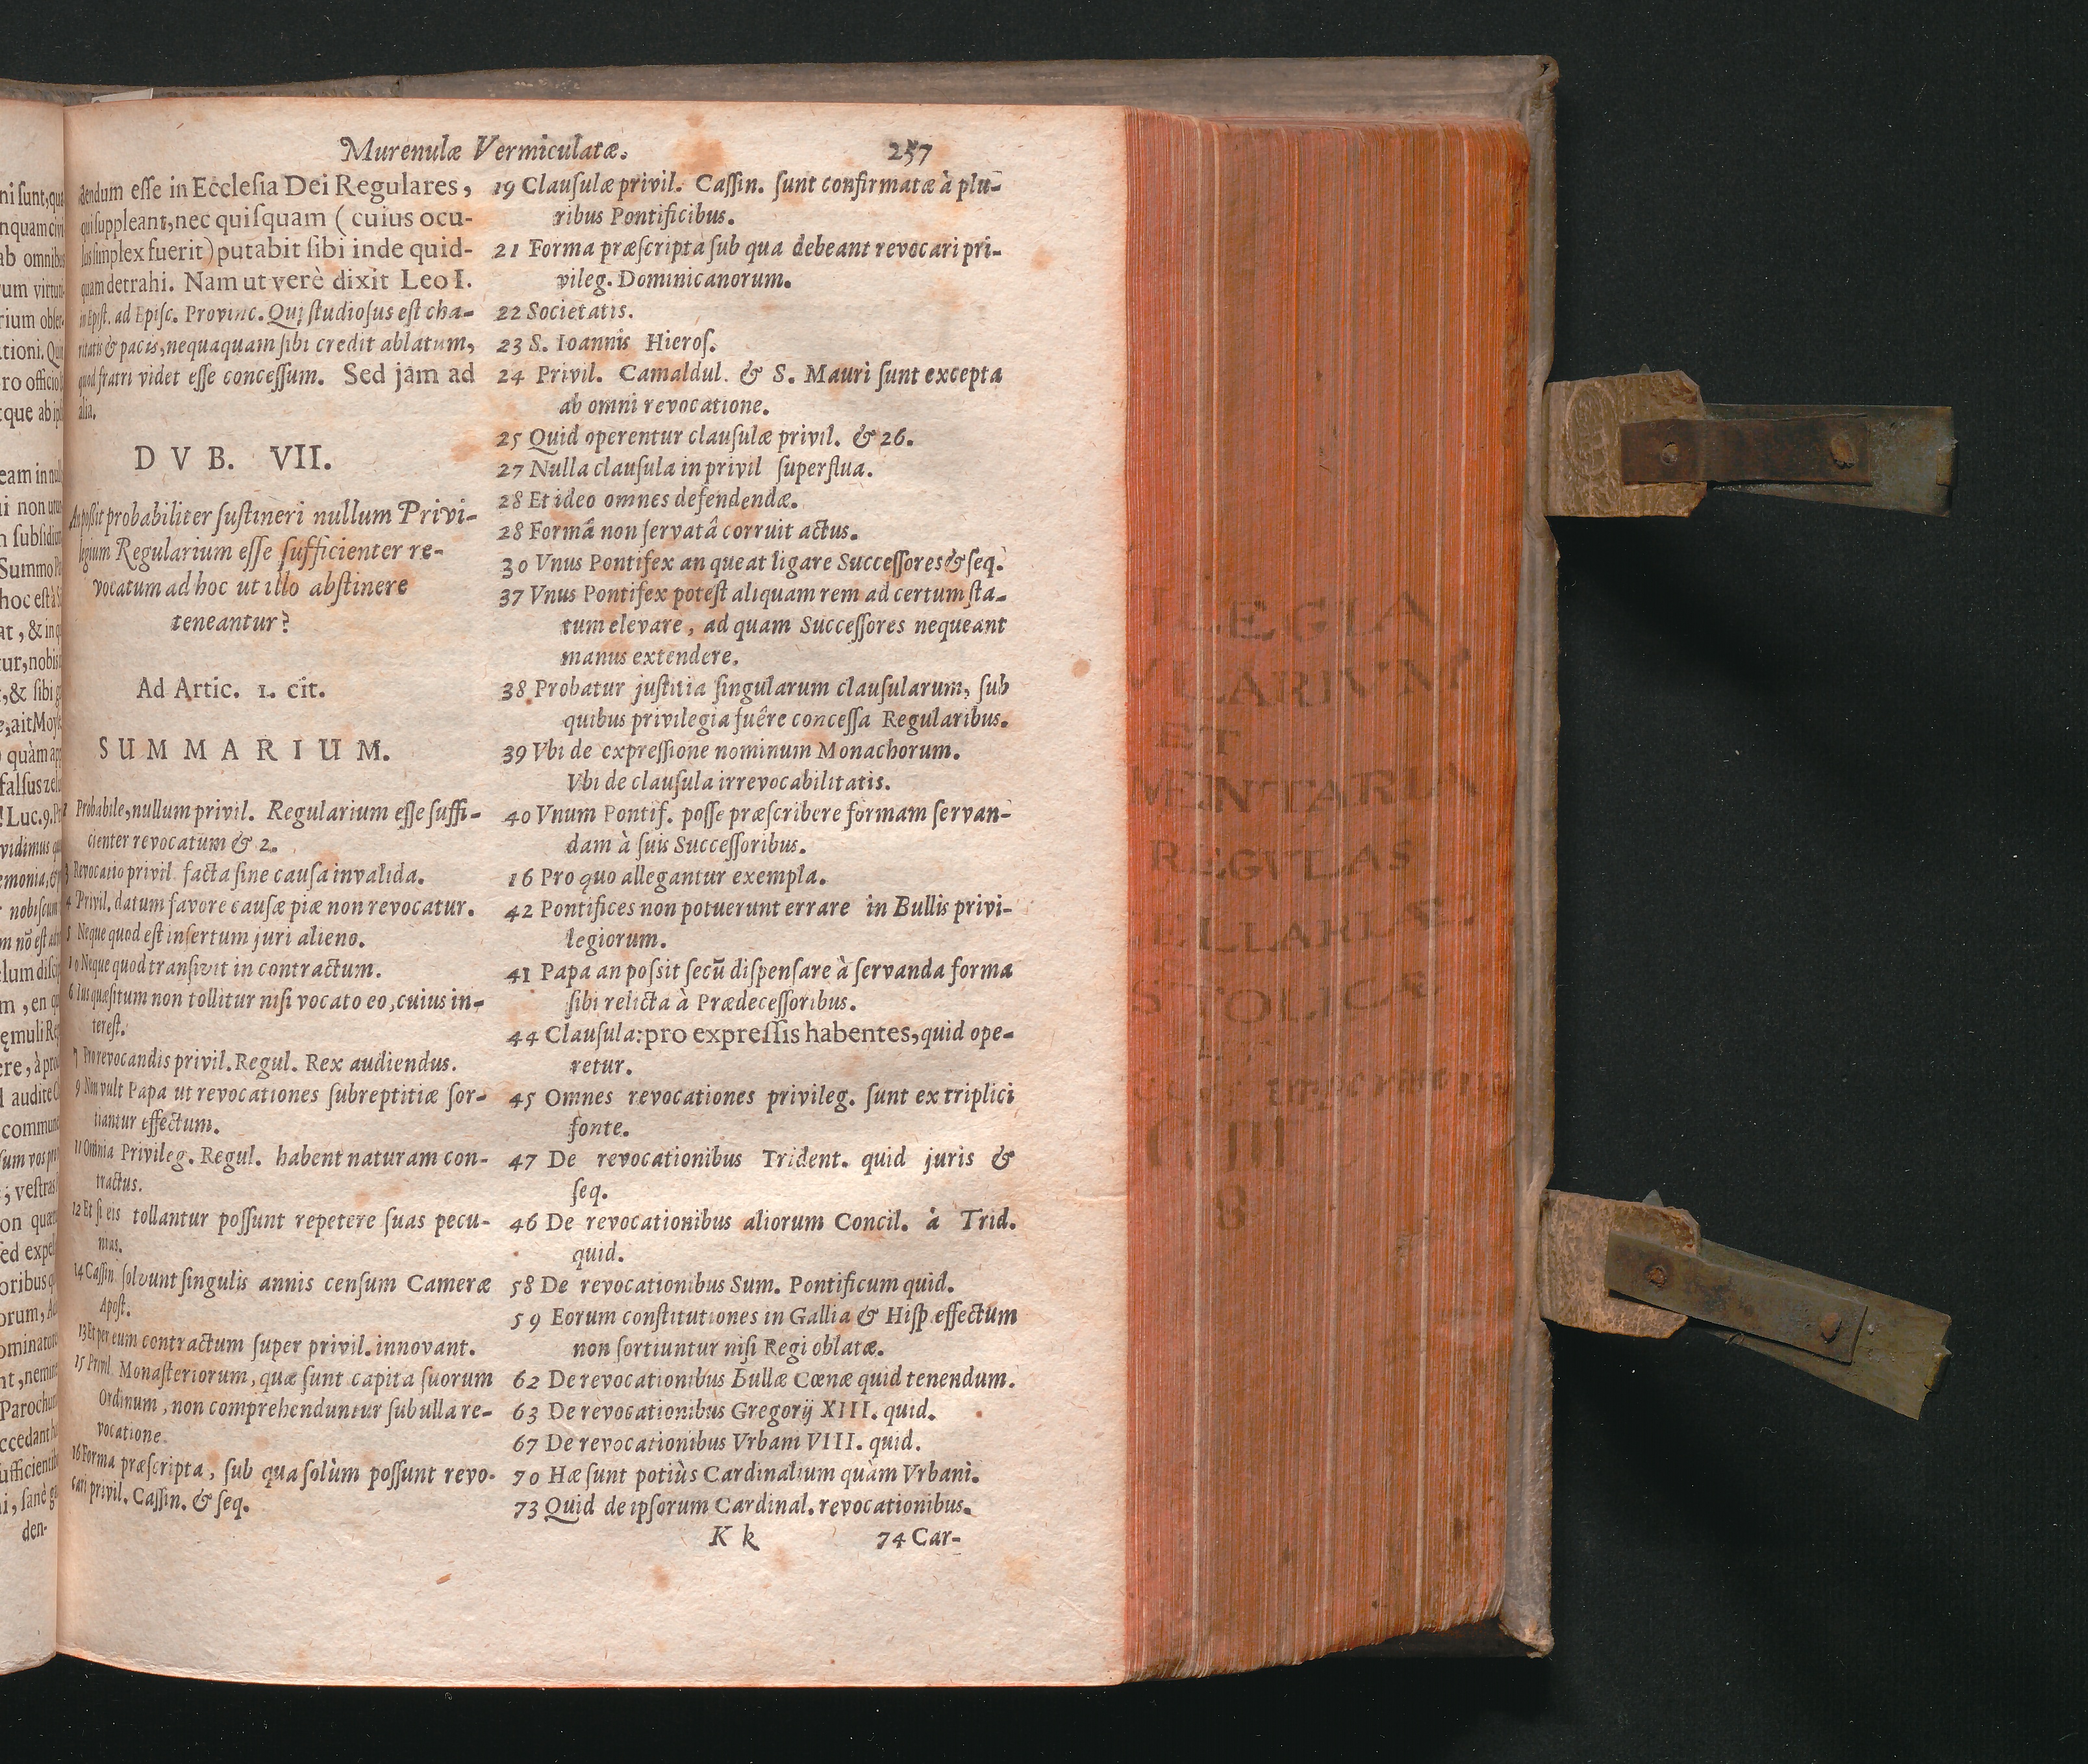 Murenulæ Vermiculatæ. 257
dendum eſſe in Eccleſia Dei Regulares,
qui ſuppleant, nec quiſquam (cuius ocu-
lus ſimplex fuerit) putabit ſibi inde quid-
quam detrahi. Nam ut verè dixit Leo I.
in Epiſt. ad Epiſc. Provinc. Qui ſtudioſus eſt cha-
ritatis & pacis, nequaquam ſibi credit ablatum,
quod fratri videt eſſe conceſſum. Sed jam ad
alia.
DVB. VII.
An poſſit probabiliter ſuſtineri nullum Privi-
legium Regularium eſſe ſufficienter re-
vocatum ad hoc ut illo abſtinere
teneantur?
Ad Artic. 1. cit.
SUMMARIUM.
Probabile, nullum privil. Regularium eſſe ſuffi-
cienter revocatum & 2.
3 Revocatio privil. facta ſine cauſa invalida.
4 Privil. datum favore cauſæ piæ non revocatur.
5 Neque quod eſt inſertum juri alieno.
10 Neque quod tranſivit in contractum.
6 Ius quæſitum non tollitur niſi vocato eo, cuius in-
tereſt.
7 Pro revocandis privil. Regul. Rex audiendus.
9 Non vult Papa ut revocationes ſubreptitiæ ſor-
tiantur effectum.
11 Omnia Privileg. Regul. habent naturam con-
tractus.
12 Et ſi eis tollantur poſſunt repetere ſuas pecu-
nias.
14 Caſſin. ſolvunt ſingulis annis cenſum Cameræ
Apoſt.
13 Et per eum contractum ſuper privil. innovant.
15 Privil. Monaſteriorum, quæ ſunt capita ſuorum
Ordinum, non comprehenduntur ſub ulla re-
vocatione.
16 Forma præſcripta, ſub qua ſolùm poſſunt revo-
cari privil. Caſſin. & ſeq.
19 Clauſulæ privil. Caſſin. ſunt confirmatæ à plu-
ribus Pontificibus.
21 Forma præſcripta ſub qua debeant revocari pri-
vileg. Dominicanorum.
22 Societatis.
23 S. Ioannis Hieroſ.
24 Privil. Camaldul. & S. Mauri ſunt excepta
ab omni revocatione.
25 Quid operentur clauſulæ privil. & 26.
27 Nulla clauſula in privil ſuperflua.
28 Et ideo omnes defendendæ.
28 Formâ non ſervatâ corruit actus.
30 Vnus Pontifex an queat ligare Succeſſores & ſeq.
37 Vnus Pontifex poteſt aliquam rem ad certum ſta-
tum elevare, ad quam Succeſſores nequeant
manus extendere.
38 Probatur juſtitia ſingularum clauſularum, ſub
quibus privilegia fuêre conceſſa Regularibus.
39 Vbi de expreſſione nominum Monachorum.
Vbi de clauſula irrevocabilitatis.
40 Vnum Pontif. poſſe præſcribere formam ſervan-
dam à ſuis Succeſſoribus.
16 Pro quo allegantur exempla.
42 Pontifices non potuerunt errare in Bullis privi-
legiorum.
41 Papa an poſsit ſecũ diſpenſare à ſervanda forma
ſibi relicta à Prædeceſſoribus.
44 Clauſula: pro expreſſis habentes, quid ope-
retur.
45 Omnes revocationes privileg. ſunt ex triplici
fonte.
47 De revocationibus Trident. quid juris &
ſeq.
46 De revocationibus aliorum Concil. à Trid.
quid.
58 De revocationibus Sum. Pontificum quid.
59 Eorum conſtitutiones in Gallia & Hiſp. effectum
non ſortiuntur niſi Regi oblatæ.
62 De revocationibus Bullæ Cœnæ quid tenendum.
63 De revocationibus Gregorij XIII. quid.
67 De revocationibus Vrbani VIII. quid.
70 Hæ ſunt potiùs Cardinalium quàm Vrbani.
73 Quid de ipſorum Cardinal. revocationibus.
K k 74 Car-
ILEGIA
VLARIVM
ET
MENTARIA
REGVLAS
ELLARIÆ
STOLICÆ
8